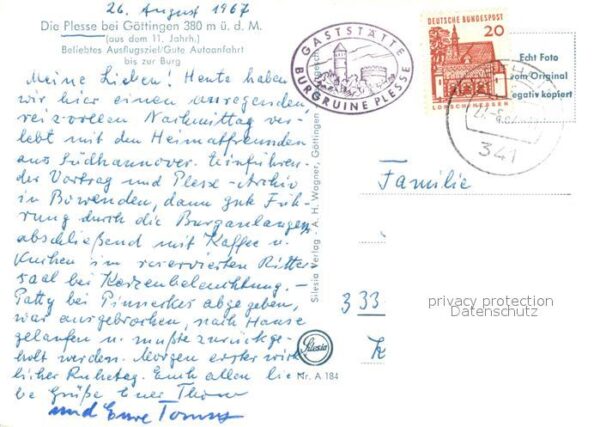 26. August 1967
Die Plesse bei Göttingen 380 m ü. d. M.
(aus dem 11. Jahrh.)
Beliebtes Ausflugsziel/Gute Autoanfahrt
bis zur Burg
Meine Lieben! Heute haben
wir hier einen anregenden,
reizvollen Nachmittag ver-
lebt mit den Heimatfreunden
aus Südhannover. Einführen-
der Vortrag und Plesse-Archiv
in Bovenden, dann gute Füh-
rung durch die Burganlangen,
abschließend mit Kaffee u.
Kuchen im reservierten Ritter-
saal bei Kerzenbeleuchtung. –
Patty bei abgegeben,
war ausgebrochen, nach Hause
gelaufen u. mußte zurückge-
holt werden. Morgen erster wirk-
licher Ruhetag. Euch allen lie-
be Grüße Euer
und Eure
GASTSTÄTTE
BURGRUINE PLESSE
Silesia Verlag - A. H. Wagner, Göttingen
Silesia
Nr. A 184
DEUTSCHE BUNDESPOST
20
LORSCH/HESSEN
341
Echt Foto
vom Original
negativ kopiert
Familie
333
privacy protection
Datenschutz